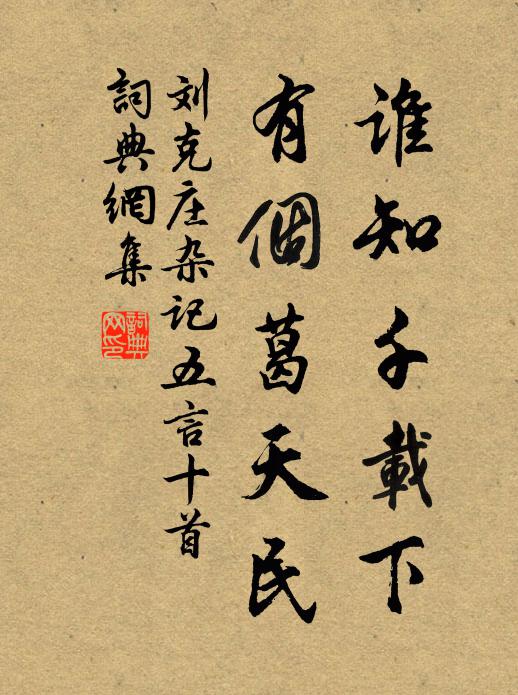 谁知千載下
有個葛天民
刘克庄杂记五言十首
詞典網集
詞典網印